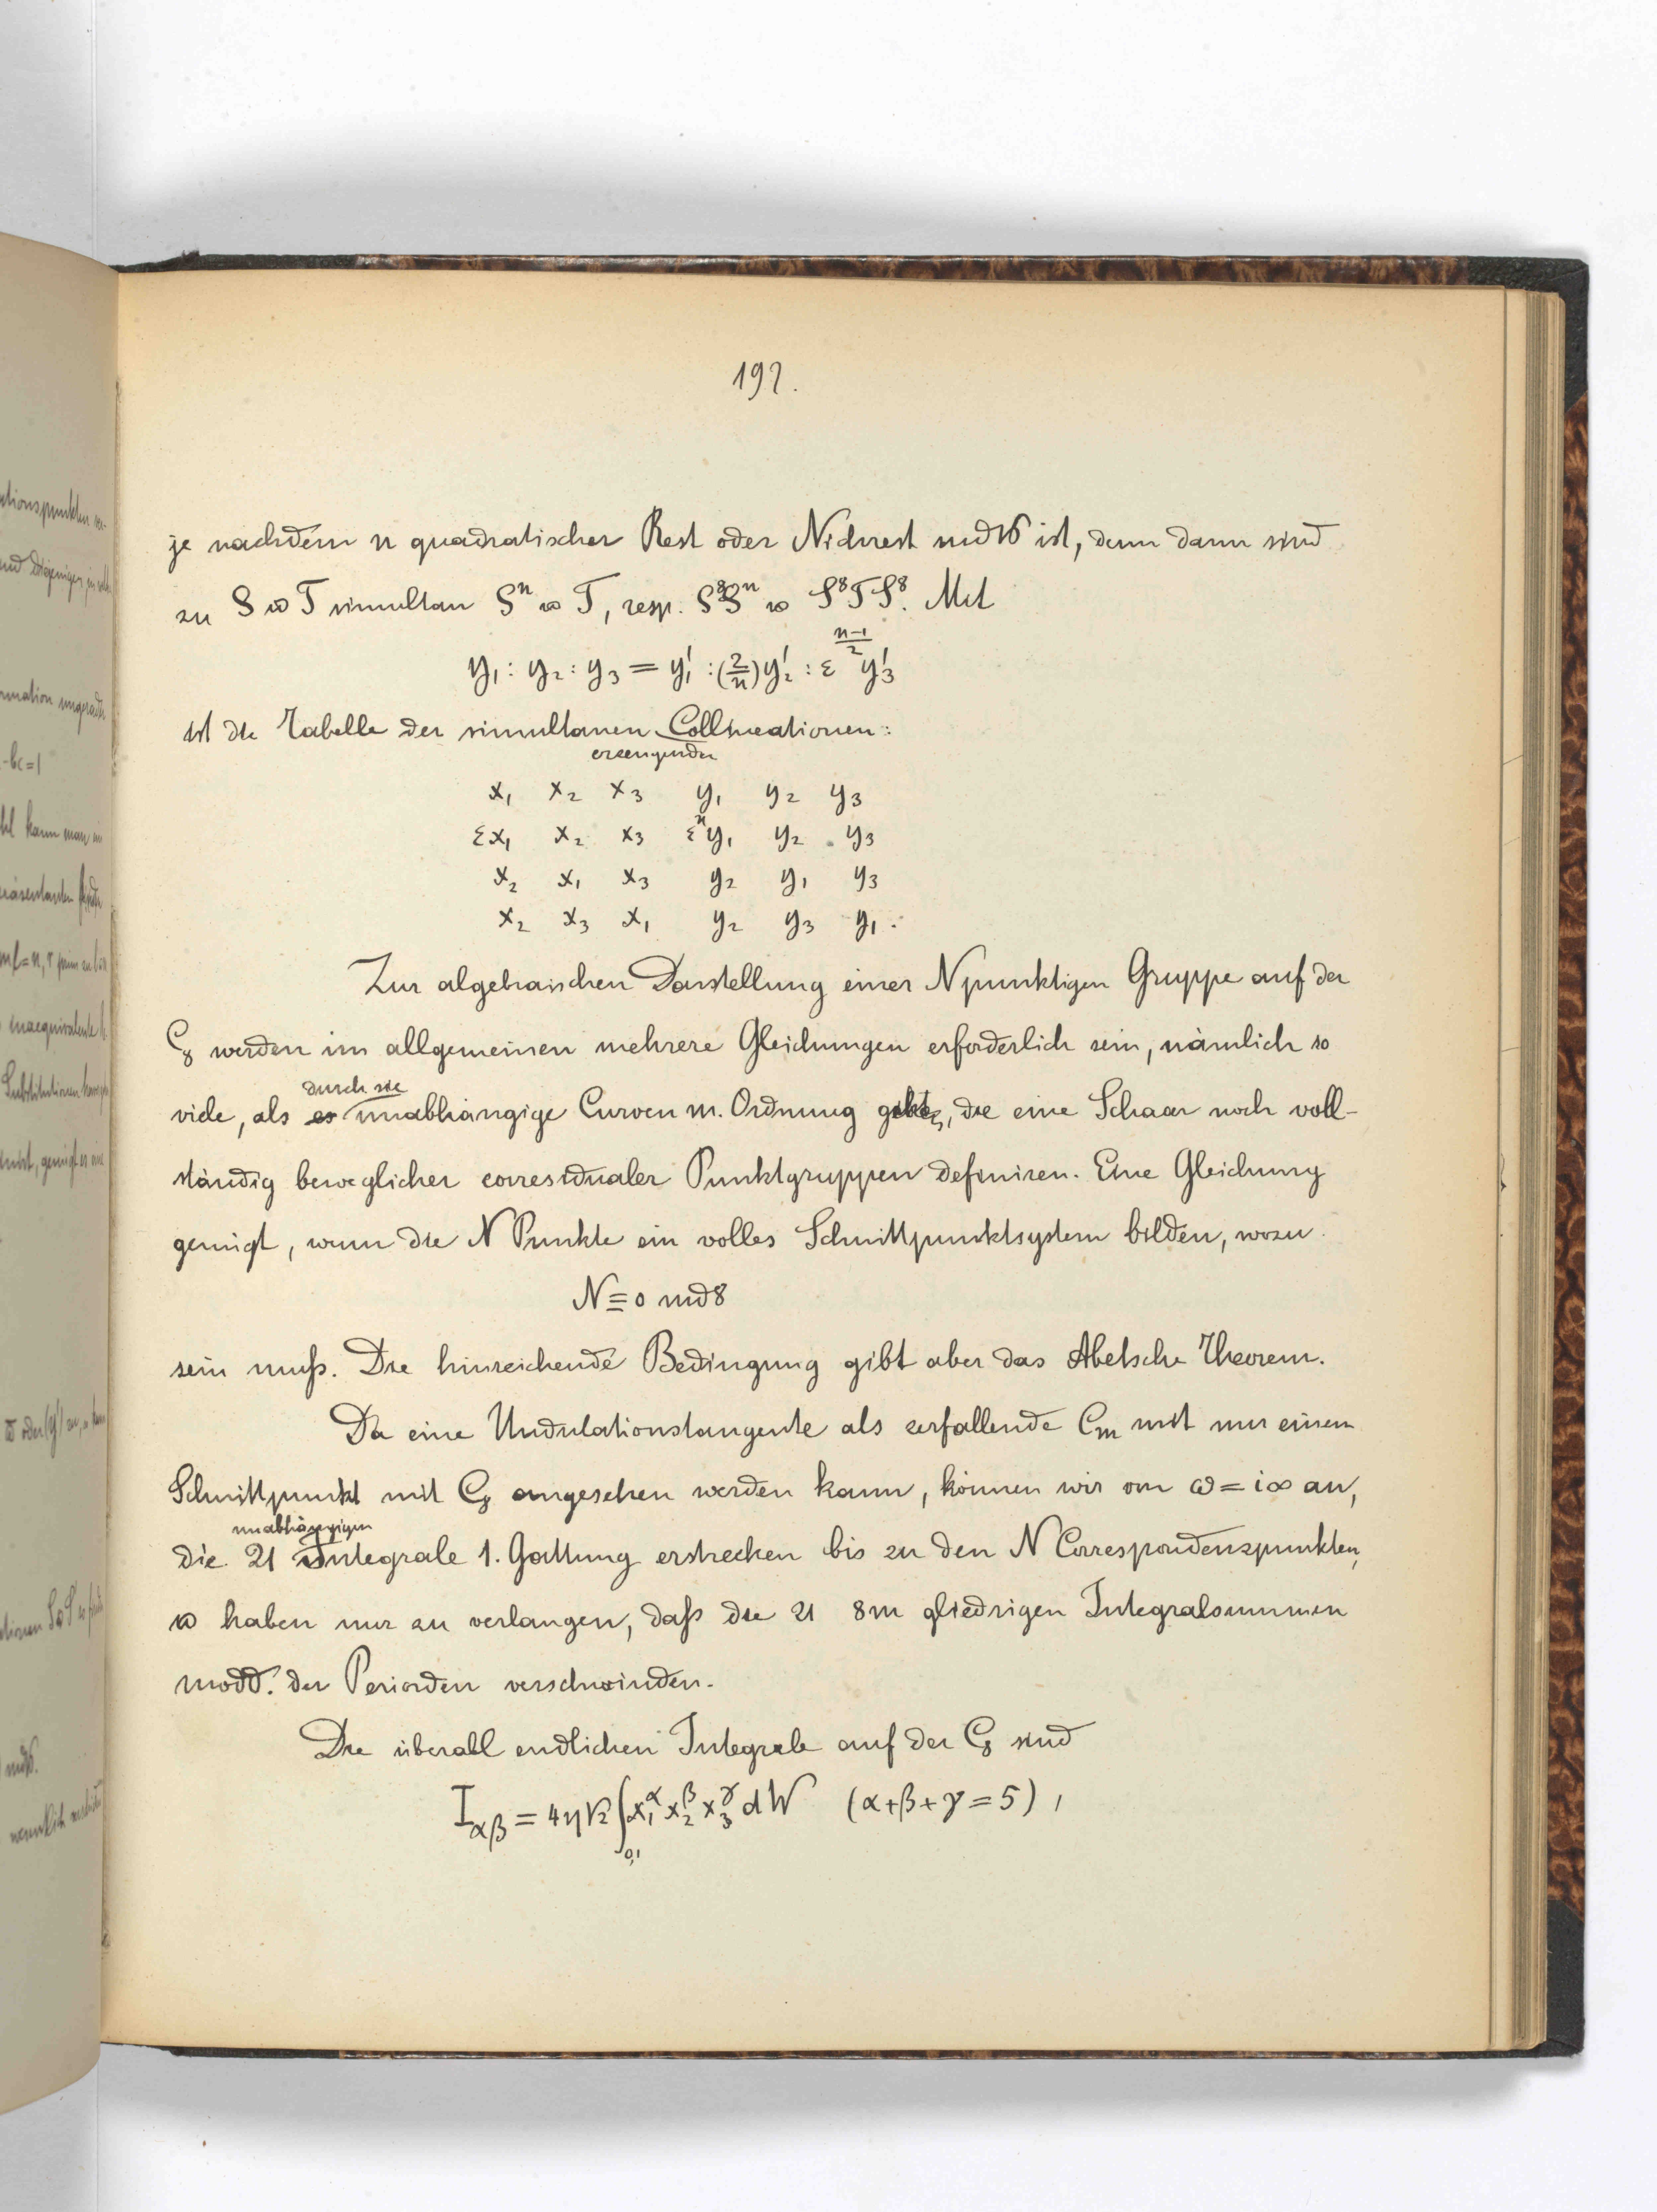 197.
je nachdem n quadratischer Rest oder Nichtrest md 16 ist, denn dann sind
zu S u T simultan Sⁿ u T, resp. S⁸Sⁿ u S⁸TS⁸. Mit
y₁ : y₂ : y₃ = y₁' : (2/n) y₂' : ε^((n-1)/2) y₃'
ist die Tabelle der simultanen Collineationen:
erzeugenden
x₁ x₂ x₃ y₁ y₂ y₃
εx₁ x₂ x₃ εⁿy₁ y₂ y₃
x₂ x₁ x₃ y₂ y₁ y₃
x₂ x₃ x₁ y₂ y₃ y₁.
Zur algebraischen Darstellung einer N punktigen Gruppe auf der
C₈ werden im allgemeinen mehrere Gleichungen erforderlich sein, nämlich so
durch sie
viele, als es unabhängige Curven m. Ordnung gibt, die eine Schaar noch voll-
ständig beweglicher corresidualer Punktgruppen definiren. Eine Gleichung
genügt, wenn die N Punkte ein volles Schnittpunktsystem bilden, wozu
N ≡ 0 md 8
sein muß. Die hinreichende Bedingung gibt aber das Abelsche Theorem.
Da eine Undulationstangente als zerfallende Cₘ mit nur einem
Schnittpunkt mit C₈ angesehen werden kann, können wir von ω = i∞ an,
unabhängigen
die 21 Integrale 1. Gattung erstrecken bis zu den N Correspondenzpunkten,
u haben nur zu verlangen, daß die 21 8m gliedrigen Integralsummen
modd. der Perioden verschwinden.
Die überall endlichen Integrale auf der C₈ sind
I_αβ = 4η√2 ∫₀,₁ x₁^α x₂^β x₃^γ dW (α+β+γ = 5),